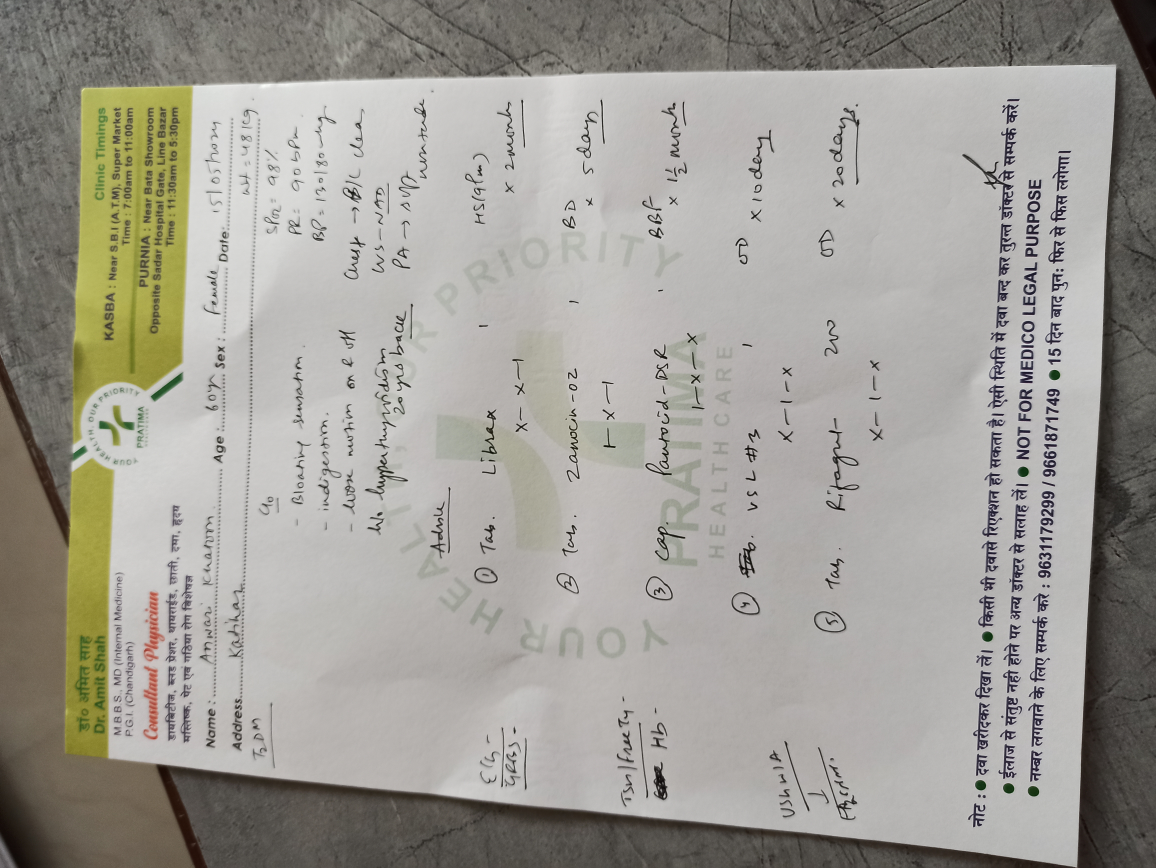 डॉ० अमित साह
Dr. Amit Shah
M.B.B.S., MD (Internal Medicine)
P.G.I. (Chandigarh)
Consultant Physician
डायबिटीज, ब्लड प्रेशर, थायराईड, छाती, दमा, हृदय
मस्तिष्क, पेट एवं गठिया रोग विशेषज्ञ
YOUR HEALTH, OUR PRIORITY
PRATIMA
Clinic Timings
KASBA : Near S.B.I (A.T.M), Super Market
Time : 7:00am to 11:00am
PURNIA : Near Bata Showroom
Opposite Sadar Hospital Gate, Line Bazar
Time : 11:30am to 5:30pm
Name : Anwari Khatoon Age : 60yr Sex : Female Date:
Address Katihar wt = 48 kg.
T2DM
C/o
SPO2 = 98%
- Bloating sensation.
PR = 90 bpm.
- indigestion.
BP = 130/80
- loose motion on & off
Chest → B/L clear
H/o hyperthyroidism
20 yrs back
PA → soft
Advice
① Tab. Librax 1 HS (9pm)
x - x - 1 x 2 month
ECG -
GRBS -
② Tab. Zanocin-OZ 1 BD
1 - x - 1 x 5 days
TSH/Free T4 -
Hb -
③ Cap. Pantocid-DSR 1 BBF
1 - x - x x 1½ month
④ VSL #3 1 OD
x - 1 - x x 10 days
USG W/A
↓
⑤ Tab. Rifagut 200 OD
x - 1 - x x 20 days.
YOUR HEALTH, OUR PRIORITY
PRATIMA
HEALTH CARE
नोट : ● दवा खरीदकर दिखा लें। ● किसी भी दवासे रिएक्शन हो सकता है। ऐसी स्थिति में दवा बन्द कर तुरन्त डॉक्टर से सम्पर्क करें।
● ईलाज से संतुष्ट नही होने पर अन्य डॉक्टर से सलाह लें। ● NOT FOR MEDICO LEGAL PURPOSE
● नम्बर लगवाने के लिए सम्पर्क करे : 9631179299 / 9661871749 ● 15 दिन बाद पुनः फिर से फिस लगेगा।